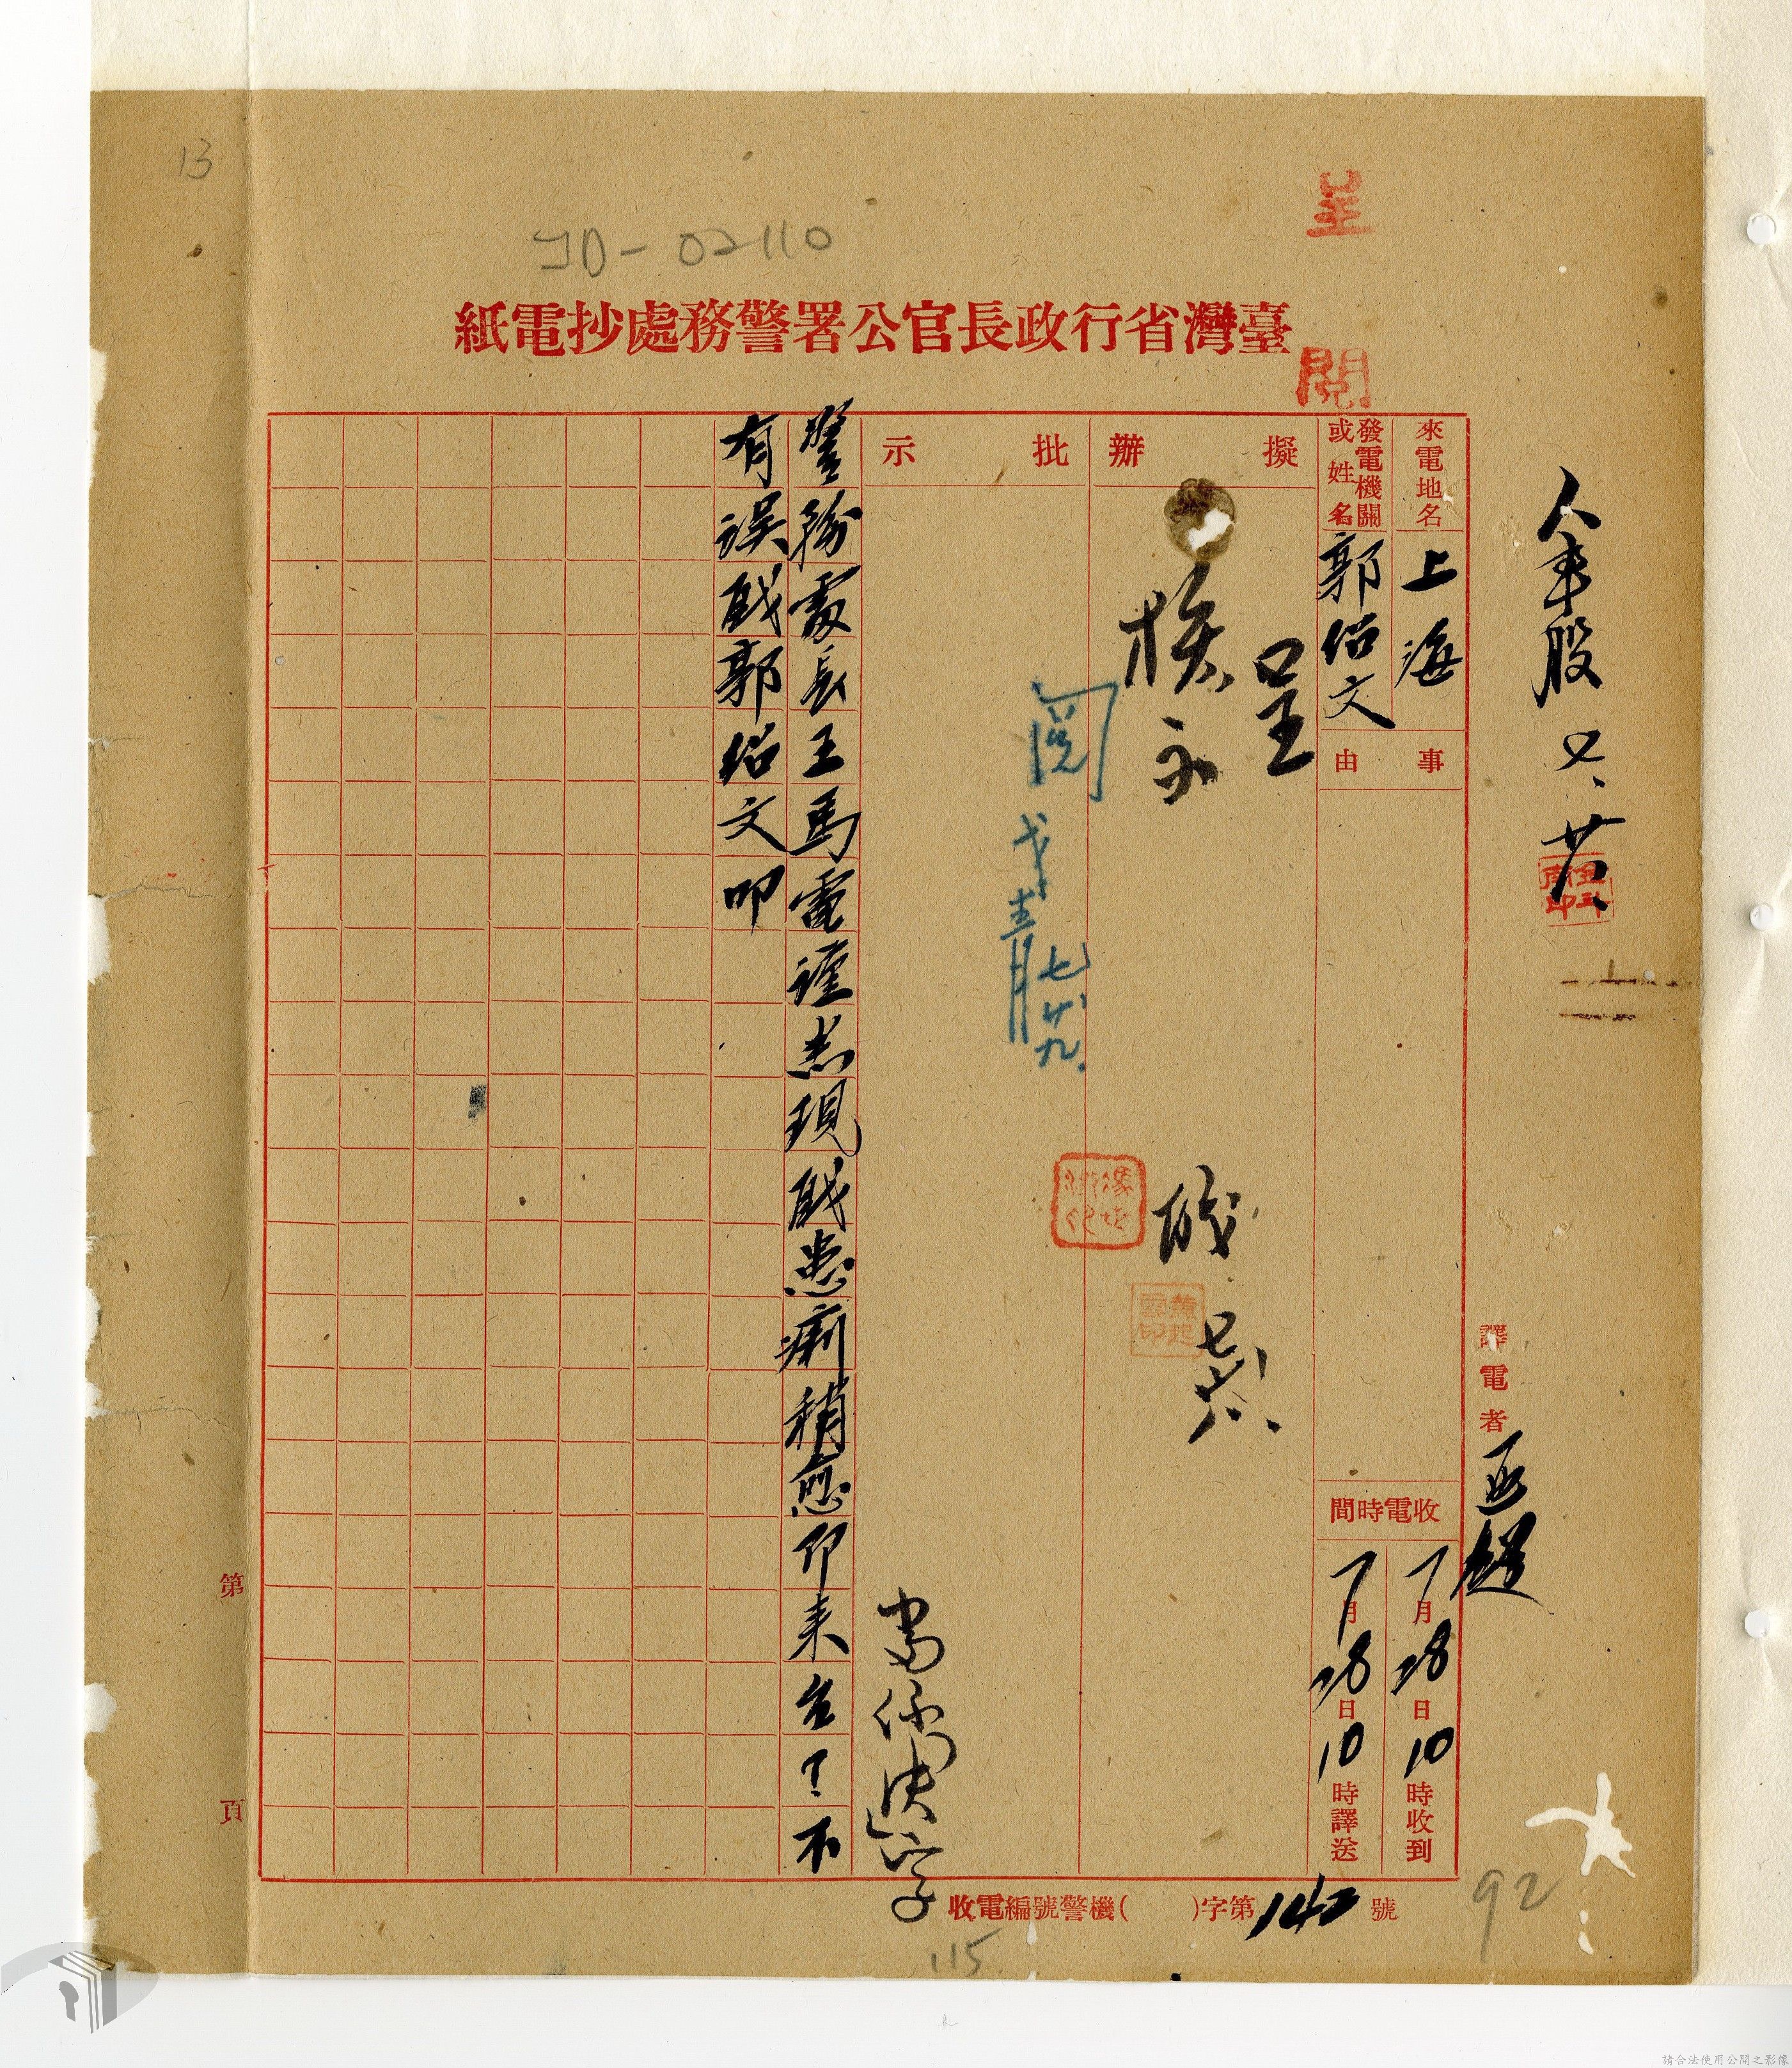 13
JD-02110
呈
閱
臺灣省行政長官公署警務處抄電紙
人事股 七、廿八
來電地名
上海
發電機關或姓名
郭紹文
事由
擬辦
呈
核示
職
七廿八
批示
閱
七廿九
警務處長王馬電謹悉現職患痢稍愈即来台了不
有误職郭紹文叩
當係决字
譯電者
收電時間
7月28日10時收到
7月28日10時譯送
收電編號警機( )字第142號
第 頁
92
115
請合法使用公開之影像